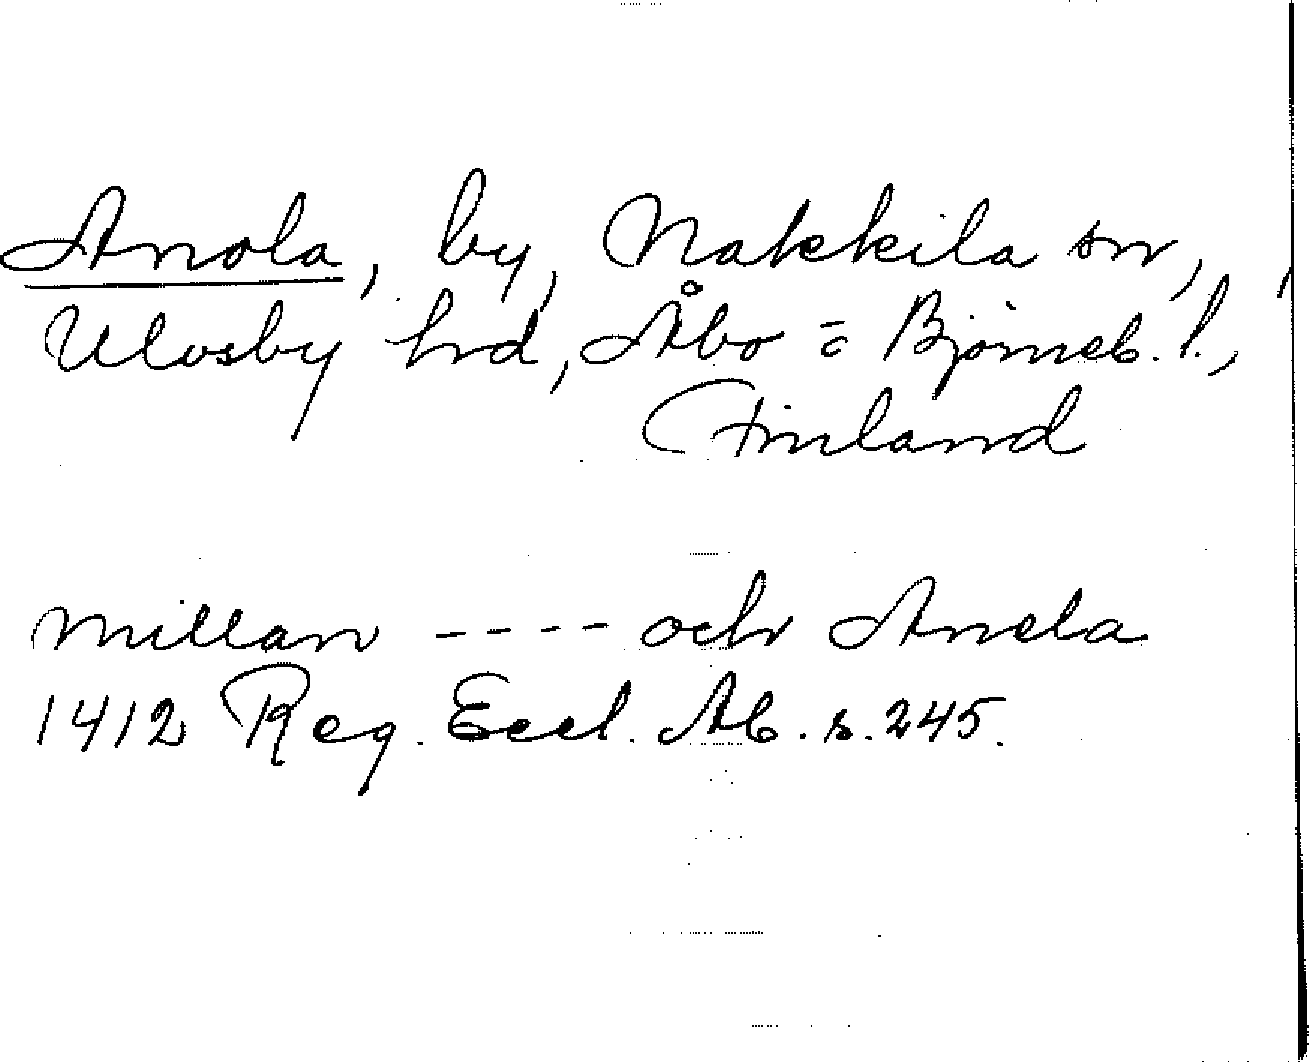 Anola, by, Nakkila sn,
Ulvsby hrd, Åbo = Björneb. l.,
Finland
millan ---- och Anela
1412 Reg. Eccl. Ab. s. 245.